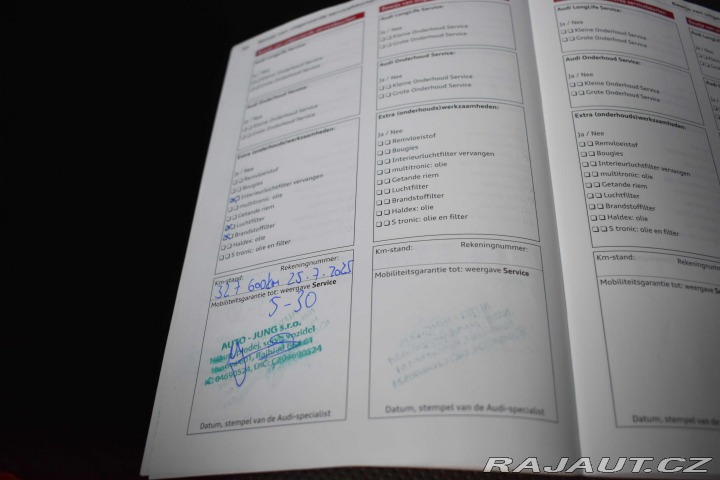 Audi LongLife Service:
Ja / Nee
Kleine Onderhoud Service
Grote Onderhoud Service
Audi Onderhoud Service:
Kleine Onderhoud Service
Grote Onderhoud Service
Extra (onderhouds)werkzaamheden:
Ja / Nee
Remvloeistof
Bougies
Interieurluchtfilter vervangen
multitronic: olie
Getande riem
Luchtfilter
Brandstoffilter
Haldex: olie
S tronic: olie en filter
Km-stand: Rekeningnummer:
327 600km 25.7.2025
Mobiliteitsgarantie tot: weergave Service
5-30
AUTO - JUNG s.r.o.
Datum, stempel van de Audi-specialist
Audi LongLife Service:
Ja / Nee
Kleine Onderhoud Service
Grote Onderhoud Service
Audi Onderhoud Service:
Ja / Nee
Kleine Onderhoud Service
Grote Onderhoud Service
Extra (onderhouds)werkzaamheden:
Ja / Nee
Remvloeistof
Bougies
Interieurluchtfilter vervangen
multitronic: olie
Getande riem
Luchtfilter
Brandstoffilter
Haldex: olie
S tronic: olie en filter
Km-stand: Rekeningnummer:
Mobiliteitsgarantie tot: weergave Service
Datum, stempel van de Audi-specialist
Audi LongLife Service:
Ja / Nee
Kleine Onderhoud Service
Grote Onderhoud Service
Audi Onderhoud Service:
Ja / Nee
Kleine Onderhoud Service
Grote Onderhoud Service
Extra (onderhouds)werkzaamheden:
Ja / Nee
Remvloeistof
Bougies
Interieurluchtfilter vervangen
multitronic: olie
Getande riem
Luchtfilter
Brandstoffilter
Haldex: olie
S tronic: olie en filter
Km-stand: Rekeningnummer:
Mobiliteitsgarantie tot: weergave Service
Datum, stempel van de Audi-specialist
RAJAUT.CZ